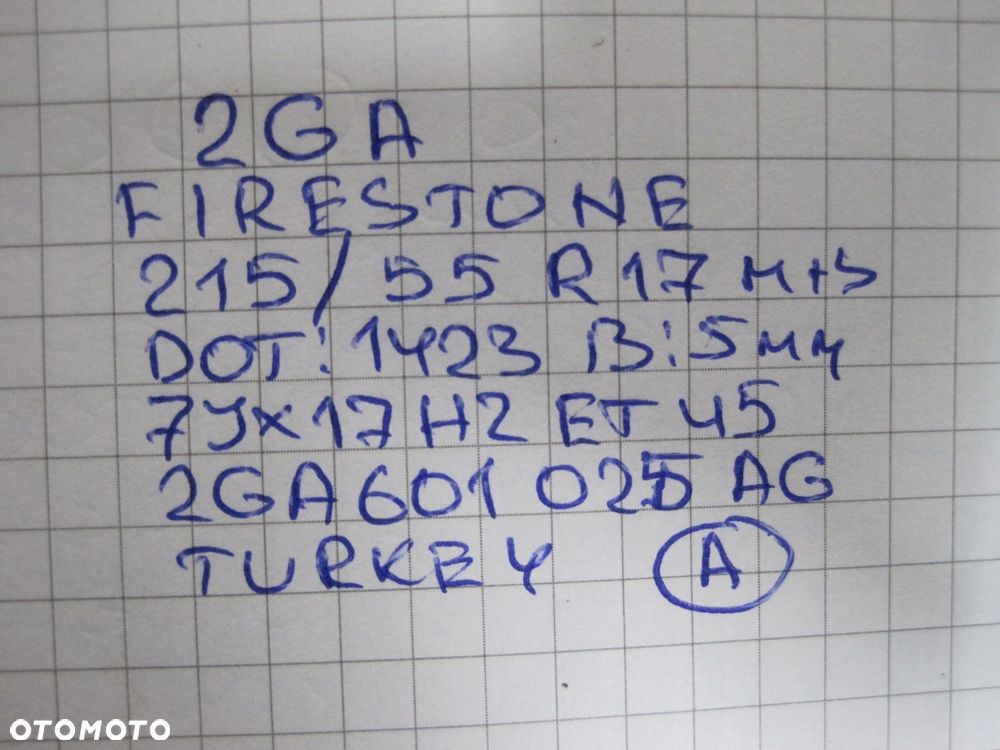 2GA
FIRESTONE
215/55 R17 M+S
DOT: 1423 B: 5mm
7Jx17H2 ET45
2GA601025 AG
TURKEY A
OTOMOTO